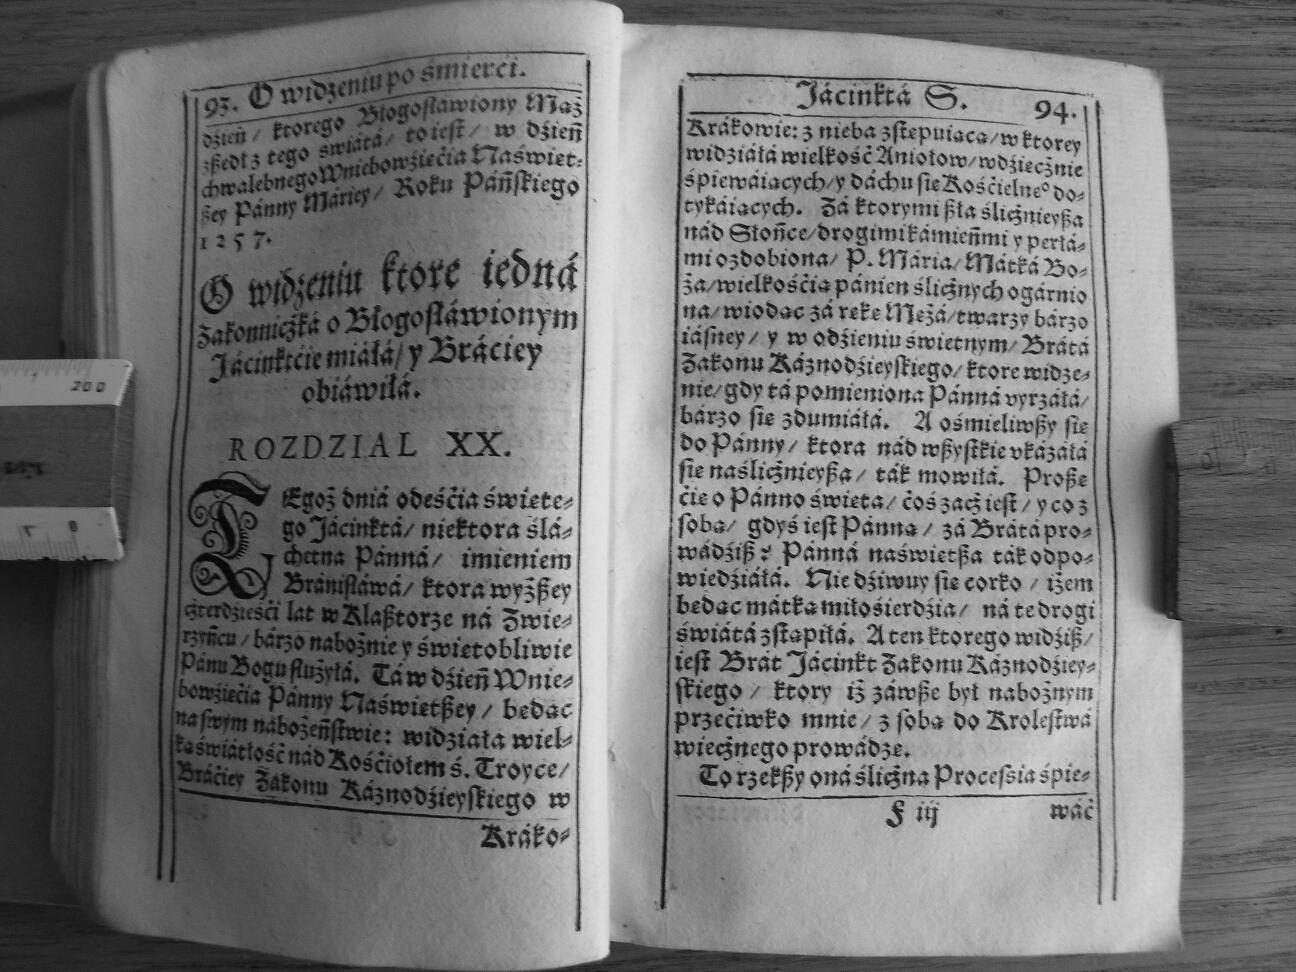 93. O widzeniu po śmierći.
dźień / ktorego Błogosławiony Mąż
zszedł z tego świátá / to iest / w dźień
chwalebnego Wniebowźięćia Naświęt-
szey Pánny Máriey / Roku Páńskiego
1257.
O widzeniu ktore iedná
zakonniczká o Błogosłáwionym
Jácinktćie miáłá / y Bráciey
obiáwiłá.
ROZDZIAL XX.
TEgoż dniá odeśćia świete-
go Jácinktá / niektora ślá-
chetna Pánná / imieniem
Bránisłáwá / ktora wyższey
czterdźieśći lat w Klasztorze ná Zwie-
rzyńcu / bárzo nabożnie y świetobliwie
Pánu Bogu służyłá. Tá w dźień Wnie-
bowźiećia Pánny Naświetszey / bedac
na swym nabożeństwie: widziała wiel-
ka świátłość nád Kośćiołem ś. Troyce /
Bráćiey Zakonu Káznodźieyskiego w
Kráko-
Jácinktá S. 94.
Krákowie: z nieba zstepuiaca / w ktorey
widźiáłá wielkość Aniołow / wdźiecznie
śpiewáiacych / y dáchu sie Kośćielne° do-
tykáiacych. Zá ktorymi szła ślicznieysza
nád Słońce / drogimi kámieńmi y perłá-
mi ozdobiona / P. Mária / Mátká Bo-
ża / wielkośćia pánien ślicznych ogárnio
na / wiodac zá reke Meżá / twarzy bárzo
iásney / y w odźieniu świetnym / Brátá
Zakonu Káznodźieyskiego / ktore widze-
nie / gdy tá pomieniona Pánná vyrzáłá /
bárzo sie zdumiáłá. A ośmieliwszy sie
do Pánny / ktora nád wszystkie vkázáłá
sie naślicznieysza / ták mowiłá. Prosze
ćie o Pánno świeta / ćoś zacz iest / y co z
soba / gdyś iest Pánna / zá Brátá pro-
wádźisz? Pánná naświetsza ták odpo-
wiedźiáłá. Nie dźiwuy sie corko / iżem
bedac mátka miłośierdźia / ná te drogi
świátá zstapiłá. A ten ktorego widźisz /
iest Brát Jácinkt Zakonu Káznodźiey-
skiego / ktory iż záwsze był nabożnym
przećiwko mnie / z soba do Krolestwá
wiecznego prowádze.
To rzekszy oná śliczna Processia śpie-
F iij wáć